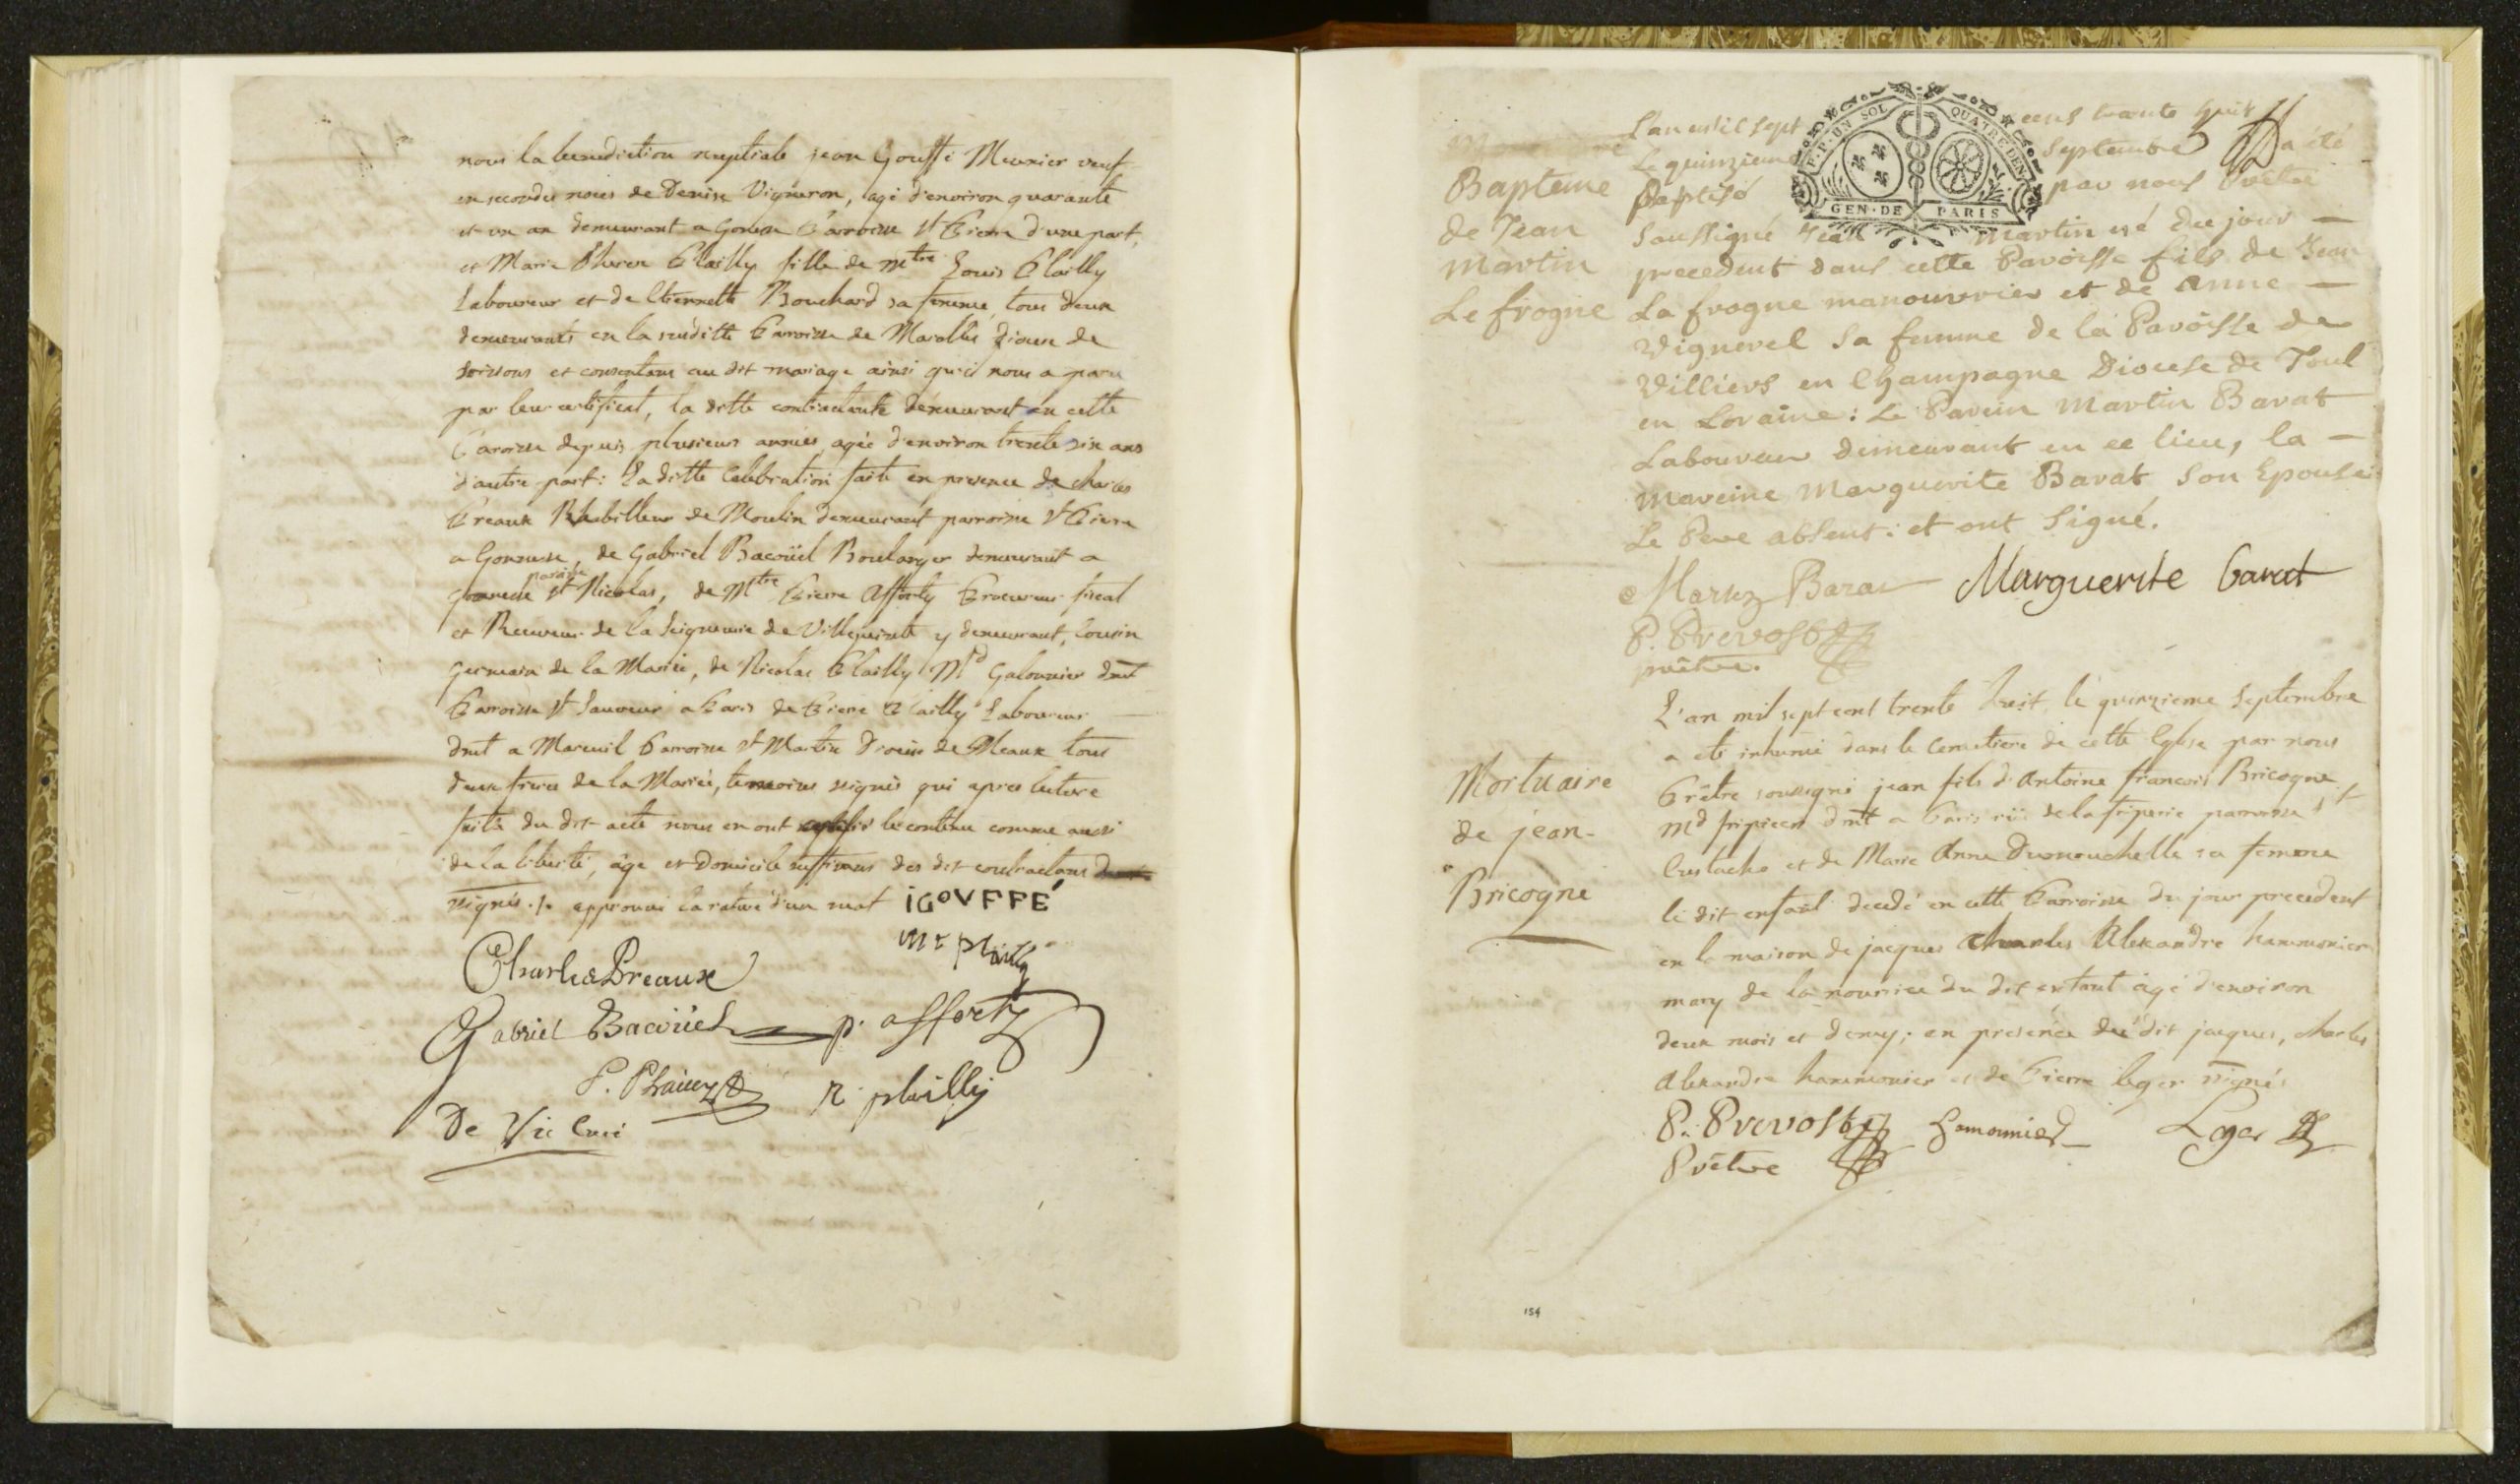 nous la benediction nuptiale jean Gouffé Meunier veuf
en secondes noces de Denise Vigneron, agé d'environ quarante
et un an demeurant a Gonesse Parroisse St Pierre d'une part,
et Marie Plailly fille de mtre Louis Plailly
Laboureur et de Bouchard sa femme, tous deux
demeurants en la susditte Parroisse de Marolles de
soissons et consentans au dit mariage ainsi qu'il nous a paru
par leur certificat, la ditte contractante demeurant en cette
Parroisse depuis plusieurs années, agée d'environ trente six ans
d'autre part: La ditte Celebration faite en presence de charles
Preaux Rhabilleur de Moulin demeurant parroisse St Pierre
a Gonnesse, de Gabriel Bacoüel Boulanger demeurant a
paroisse
gonnesse st Nicolas, de Mtre Pierre Afforty Procureur fiscal
et Receveur de la Seigneurie de Villepeinte y demeurant, Cousin
germain de la Mariée, de Nicolas Plailly Md Galonnier dmt
Parroisse St Sauveur a Paris de Pierre Plailly Laboureur
dmt a Mareuil Parroisse St Martin de Meaux tous
deux freres de la Mariée, temoins signés qui apres lecture
faite du dit acte nous en ont certifié le contenu comme aussi
de la liberté, âge et Domicile suffisans des dit contractans
signés ./. approuvé la rature d'un mot iGOVFFÉ
mt plailly
Charles Preaux
Gabriel Bacoüel p. afforty
P. Plailly n. plailly
De Vic Curé
Baptême
de Jean
Martin
Le frogne
L'an mil sept cens trante huit
Le quinzieme Septembre a été
Baptisé par nous Prêtre
Soussigné Jean Martin né du jour
precedent dans cette Paroisse fils de Jean
La frogne manouvrier et de Anne
Vignerel sa femme de la Paroisse de
Villiers en Champagne Diocese de Toul
en Loraine: Le Parein Martin Barat
Laboureur demeurant en ce lieu, la
mareine Marguerite Barat Son Epouse
Le Pere absent: et ont Signé.
Barat Marguerite Barat
P. Prevost
prêtre.
Mortuaire
de jean-
Bricogne
L'an mil sept cent trente huit, le quinzieme Septembre
a eté inhumé dans le Cemetiere de cette Eglise par nous
Prêtre soussigné jean fils d'Antoine francois Bricogne
md fripier dmt a Paris rüe de la friperie parroisse St
Eustache et de Marie Anne Dumouchelle sa femme
le dit enfant decedé en cette Parroisse du jour precedent
en la maison de jacques charles Alexandre hanmonier
mary de la nourrice du dit enfant âgé d'environ
deux mois et demy; en presence du dit jacques, charles
Alexandre hanmonier et de Pierre leger signés
P. Prevost hamonnier Leger
Prêtre
F.P. UN SOL QUATRE DEN.
GEN. DE PARIS
154